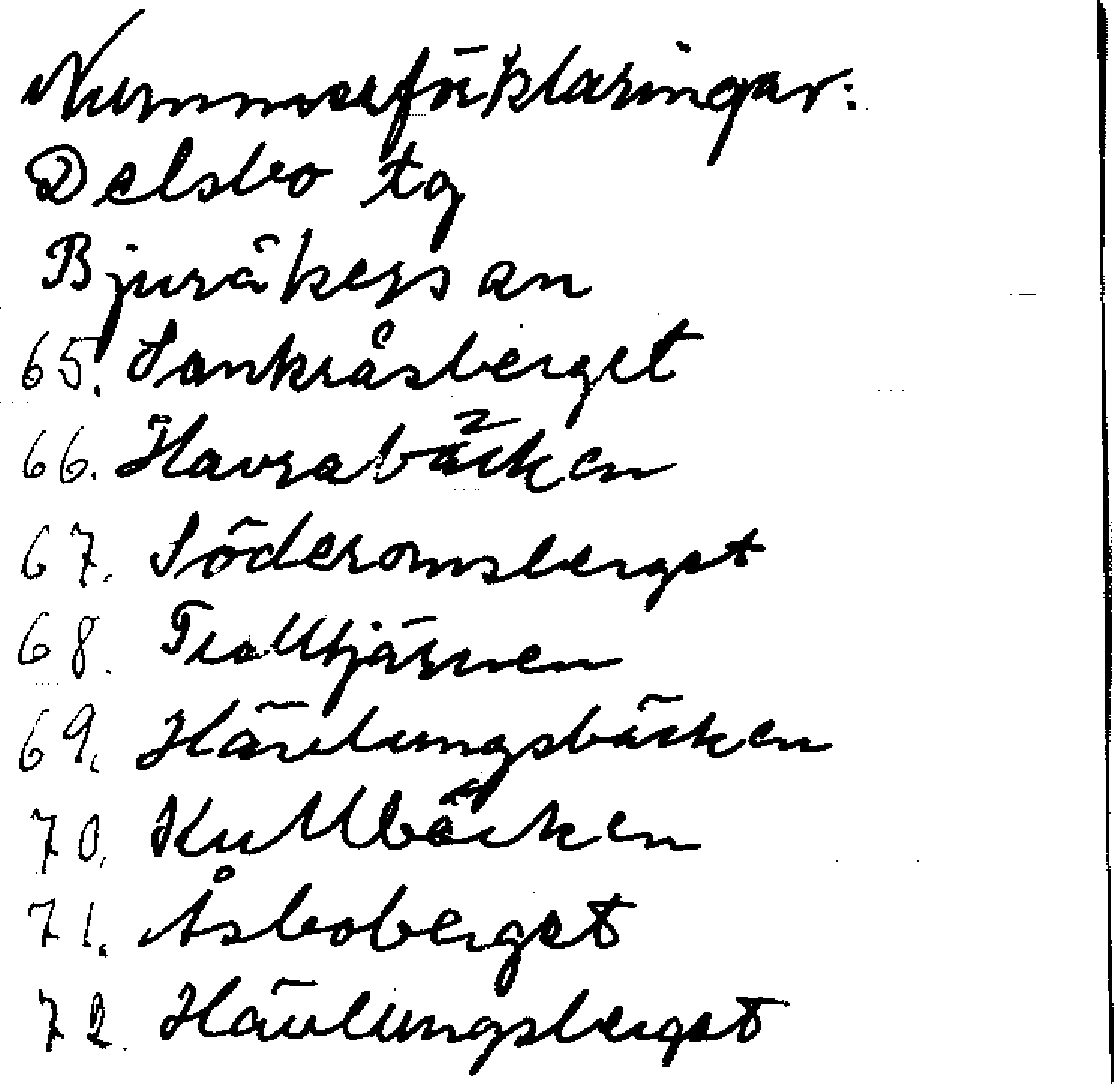 Nummerförklaringar:
Delsbo tg
Bjuråkers an
65. Sankråsberget
66. Havrabäcken
67. Söderomsberget
68. Trolltjärnen
69. Hävlungsbäcken
70. Kullbäcken
71. Åsboberget
72. Hävlungsberget